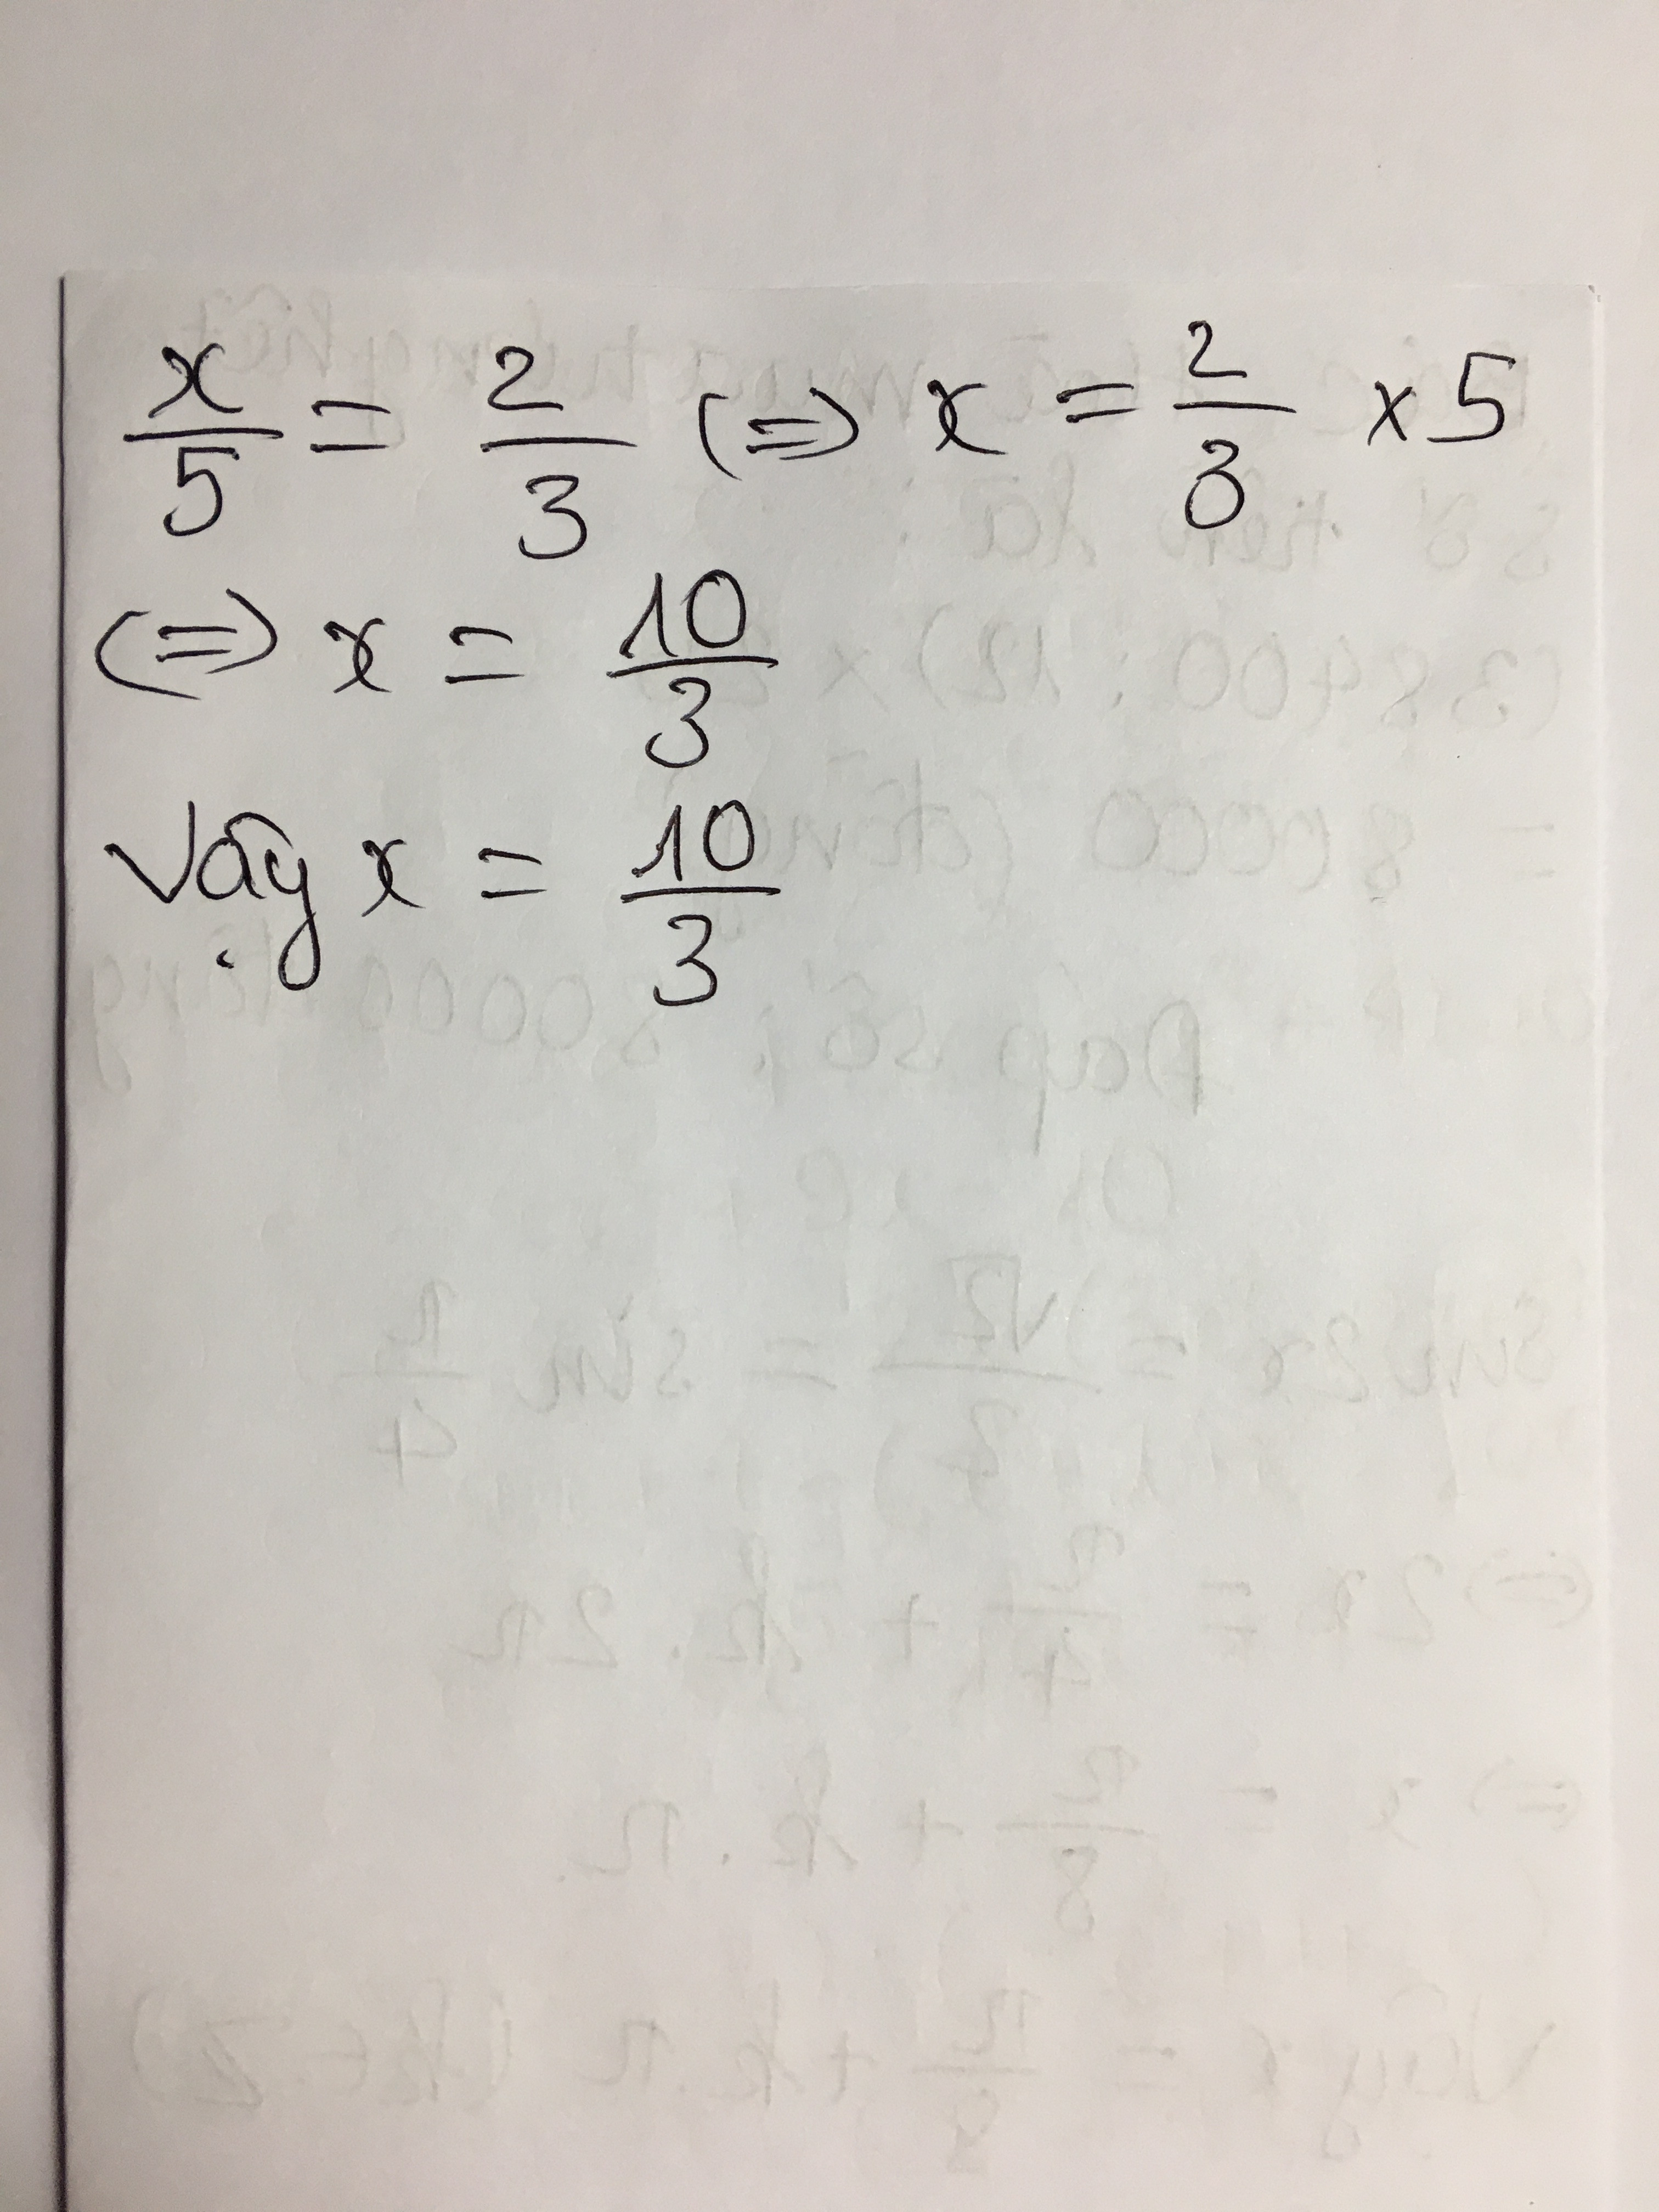 x/5 = 2/3 (=) x = 2/3 × 5
(=) x = 10/3
Vậy x = 10/3